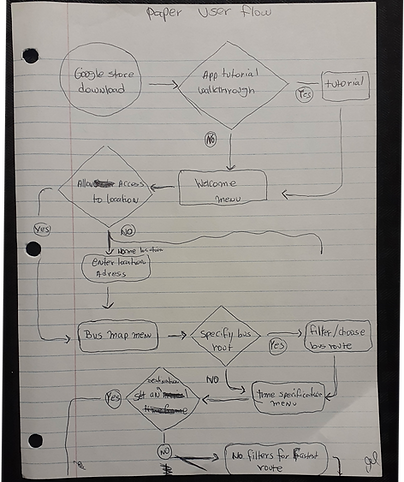 Paper User flow
Google store
download
App tutorial
walkthrough
Yes
tutorial
No
Allow Access
to location
Welcome
menu
Yes
NO
Home location
Enter location
Adress
Bus map menu
specify bus
rout
Yes
filter/choose
bus route
NO
time specification
menu
Yes
set an
NO
No filters for fastest
route